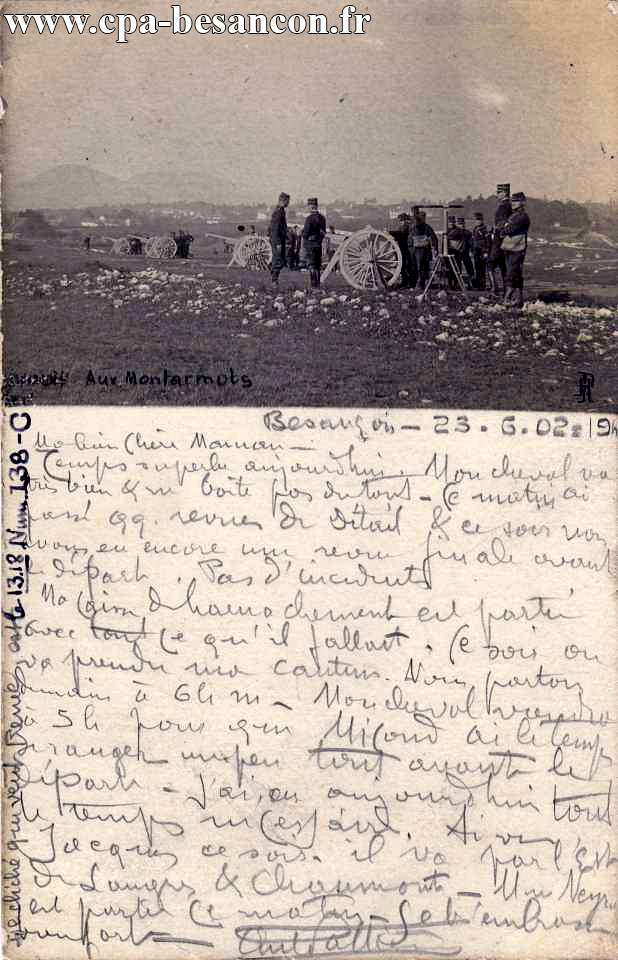 www.cpa-besancon.fr
Aux Montarmots
Besançon - 23. 6. 02 - 9h
Ma bien Chère Maman -
Temps superbe aujourd'hui. Mon cheval va
très bien & ne boite pas du tout - Ce matin ai
passé qq. revues de Détail & ce soir nous
avons eu encore une revue finale avant
le départ. Pas d'incidents
Ma caisse de harnachement est partie
avec tout ce qu'il fallait. Ce soir on
va prendre ma cantine. Nous partons
demain à 6h m - Mon cheval viendra
à 5h pour que Micond ai le temps
arranger un peu tout avant le
départ - J'ai eu aujourd'hui tout
le temps nécessaire. Ai vu
Jacques ce soir. il va par l'Est
de Langres & Chaumont - Mr
est partie ce matin - Je t'embrasse
bien fort -
le cliché que vous est le 13.18 Num. 138-C